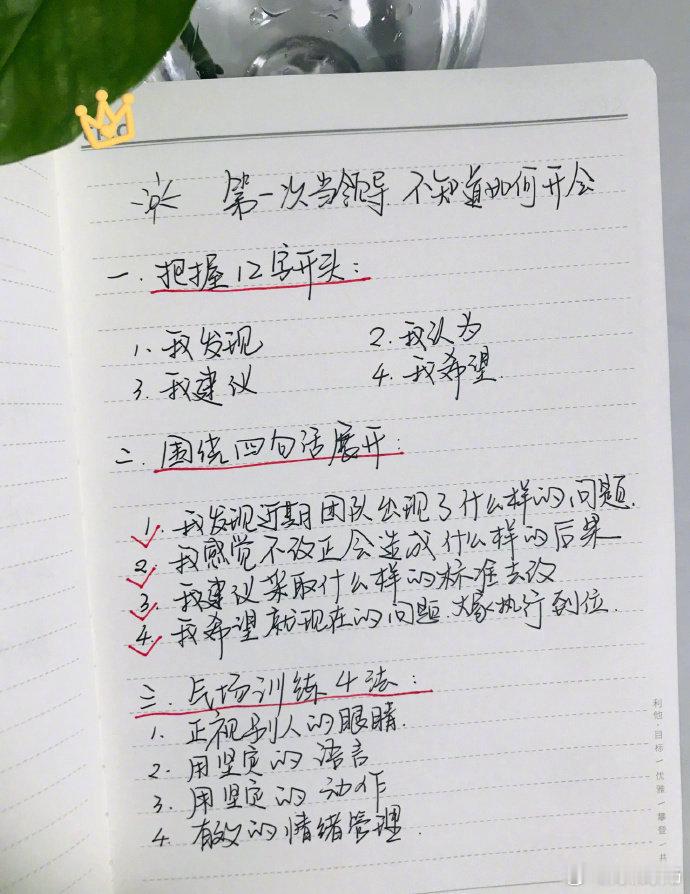 第一次当领导 不知道如何开会
一. 把握12字开头:
1. 我发现 2. 我认为
3. 我建议 4. 我希望.
二. 围绕四句话展开:
1. 我发现近期团队出现了什么样的问题.
2. 我感觉不改正会造成什么样的后果
3. 我建议采取什么样的标准去改
4. 我希望就现在的问题.大家执行到位.
三. 气场训练4法:
1. 正视别人的眼睛.
2. 用坚定的语言
3. 用坚定的动作
4. 有效的情绪管理.
利他·目标·优雅·攀登·共